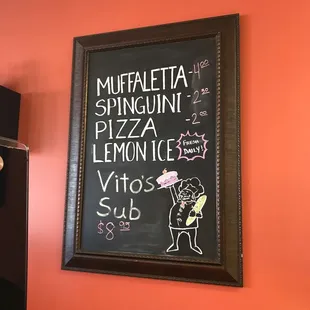 MUFFALETTA - 4.00
SPINGUINI - 2.50
PIZZA - 2.00
LEMON ICE FRESH DAILY!
Vito's
Sub
$8